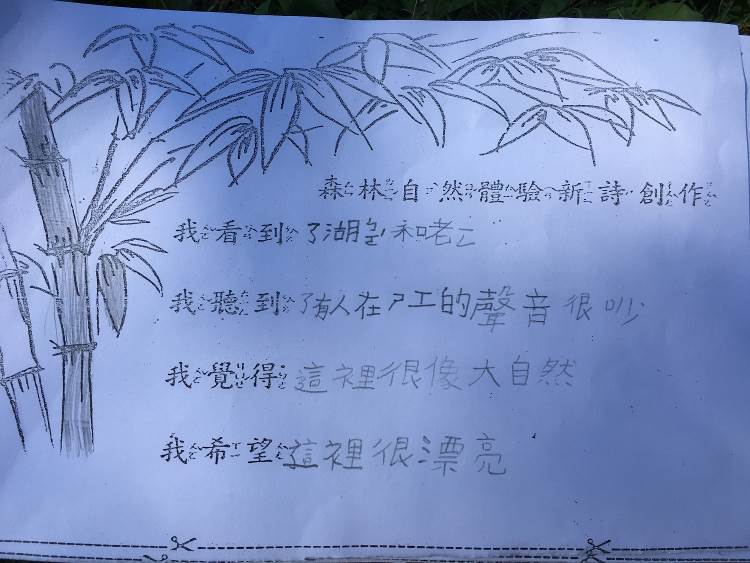 森林自然體驗新詩創作
我看到了湖ㄅㄛ和老ㄈ
我聽到了有人在ㄕ工的聲音很吵
我覺得這裡很像大自然
我希望這裡很漂亮